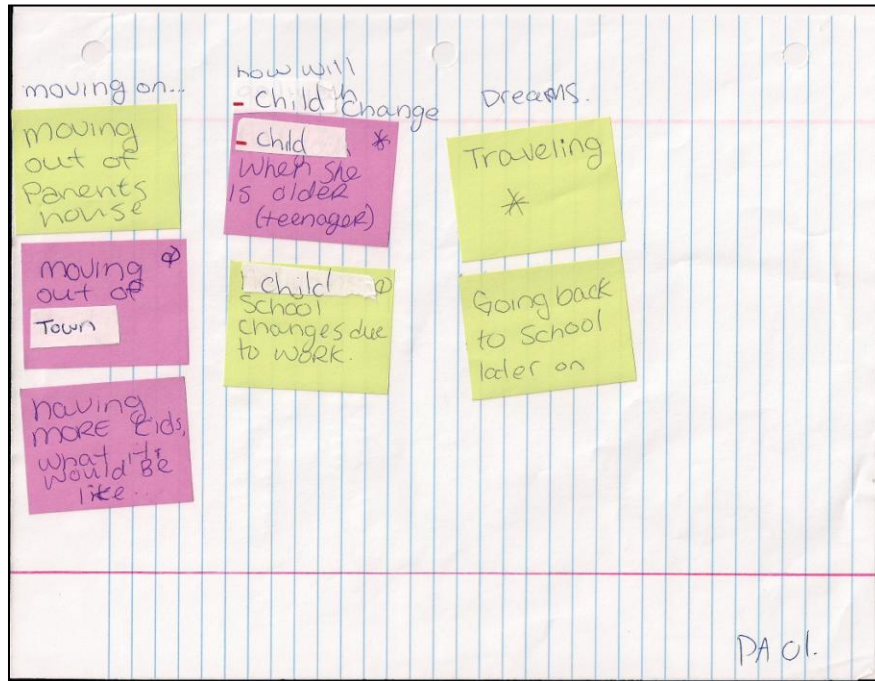 moving on...
moving
out of
Parents
house
moving
out of
Town
having
MORE kids,
what it
would BE
like...
how will
- Child Change
- Child *
When she
is older
(teenager)
Child
School
changes due
to WORK.
Dreams.
Traveling
*
Going back
to School
later on
PA 01.